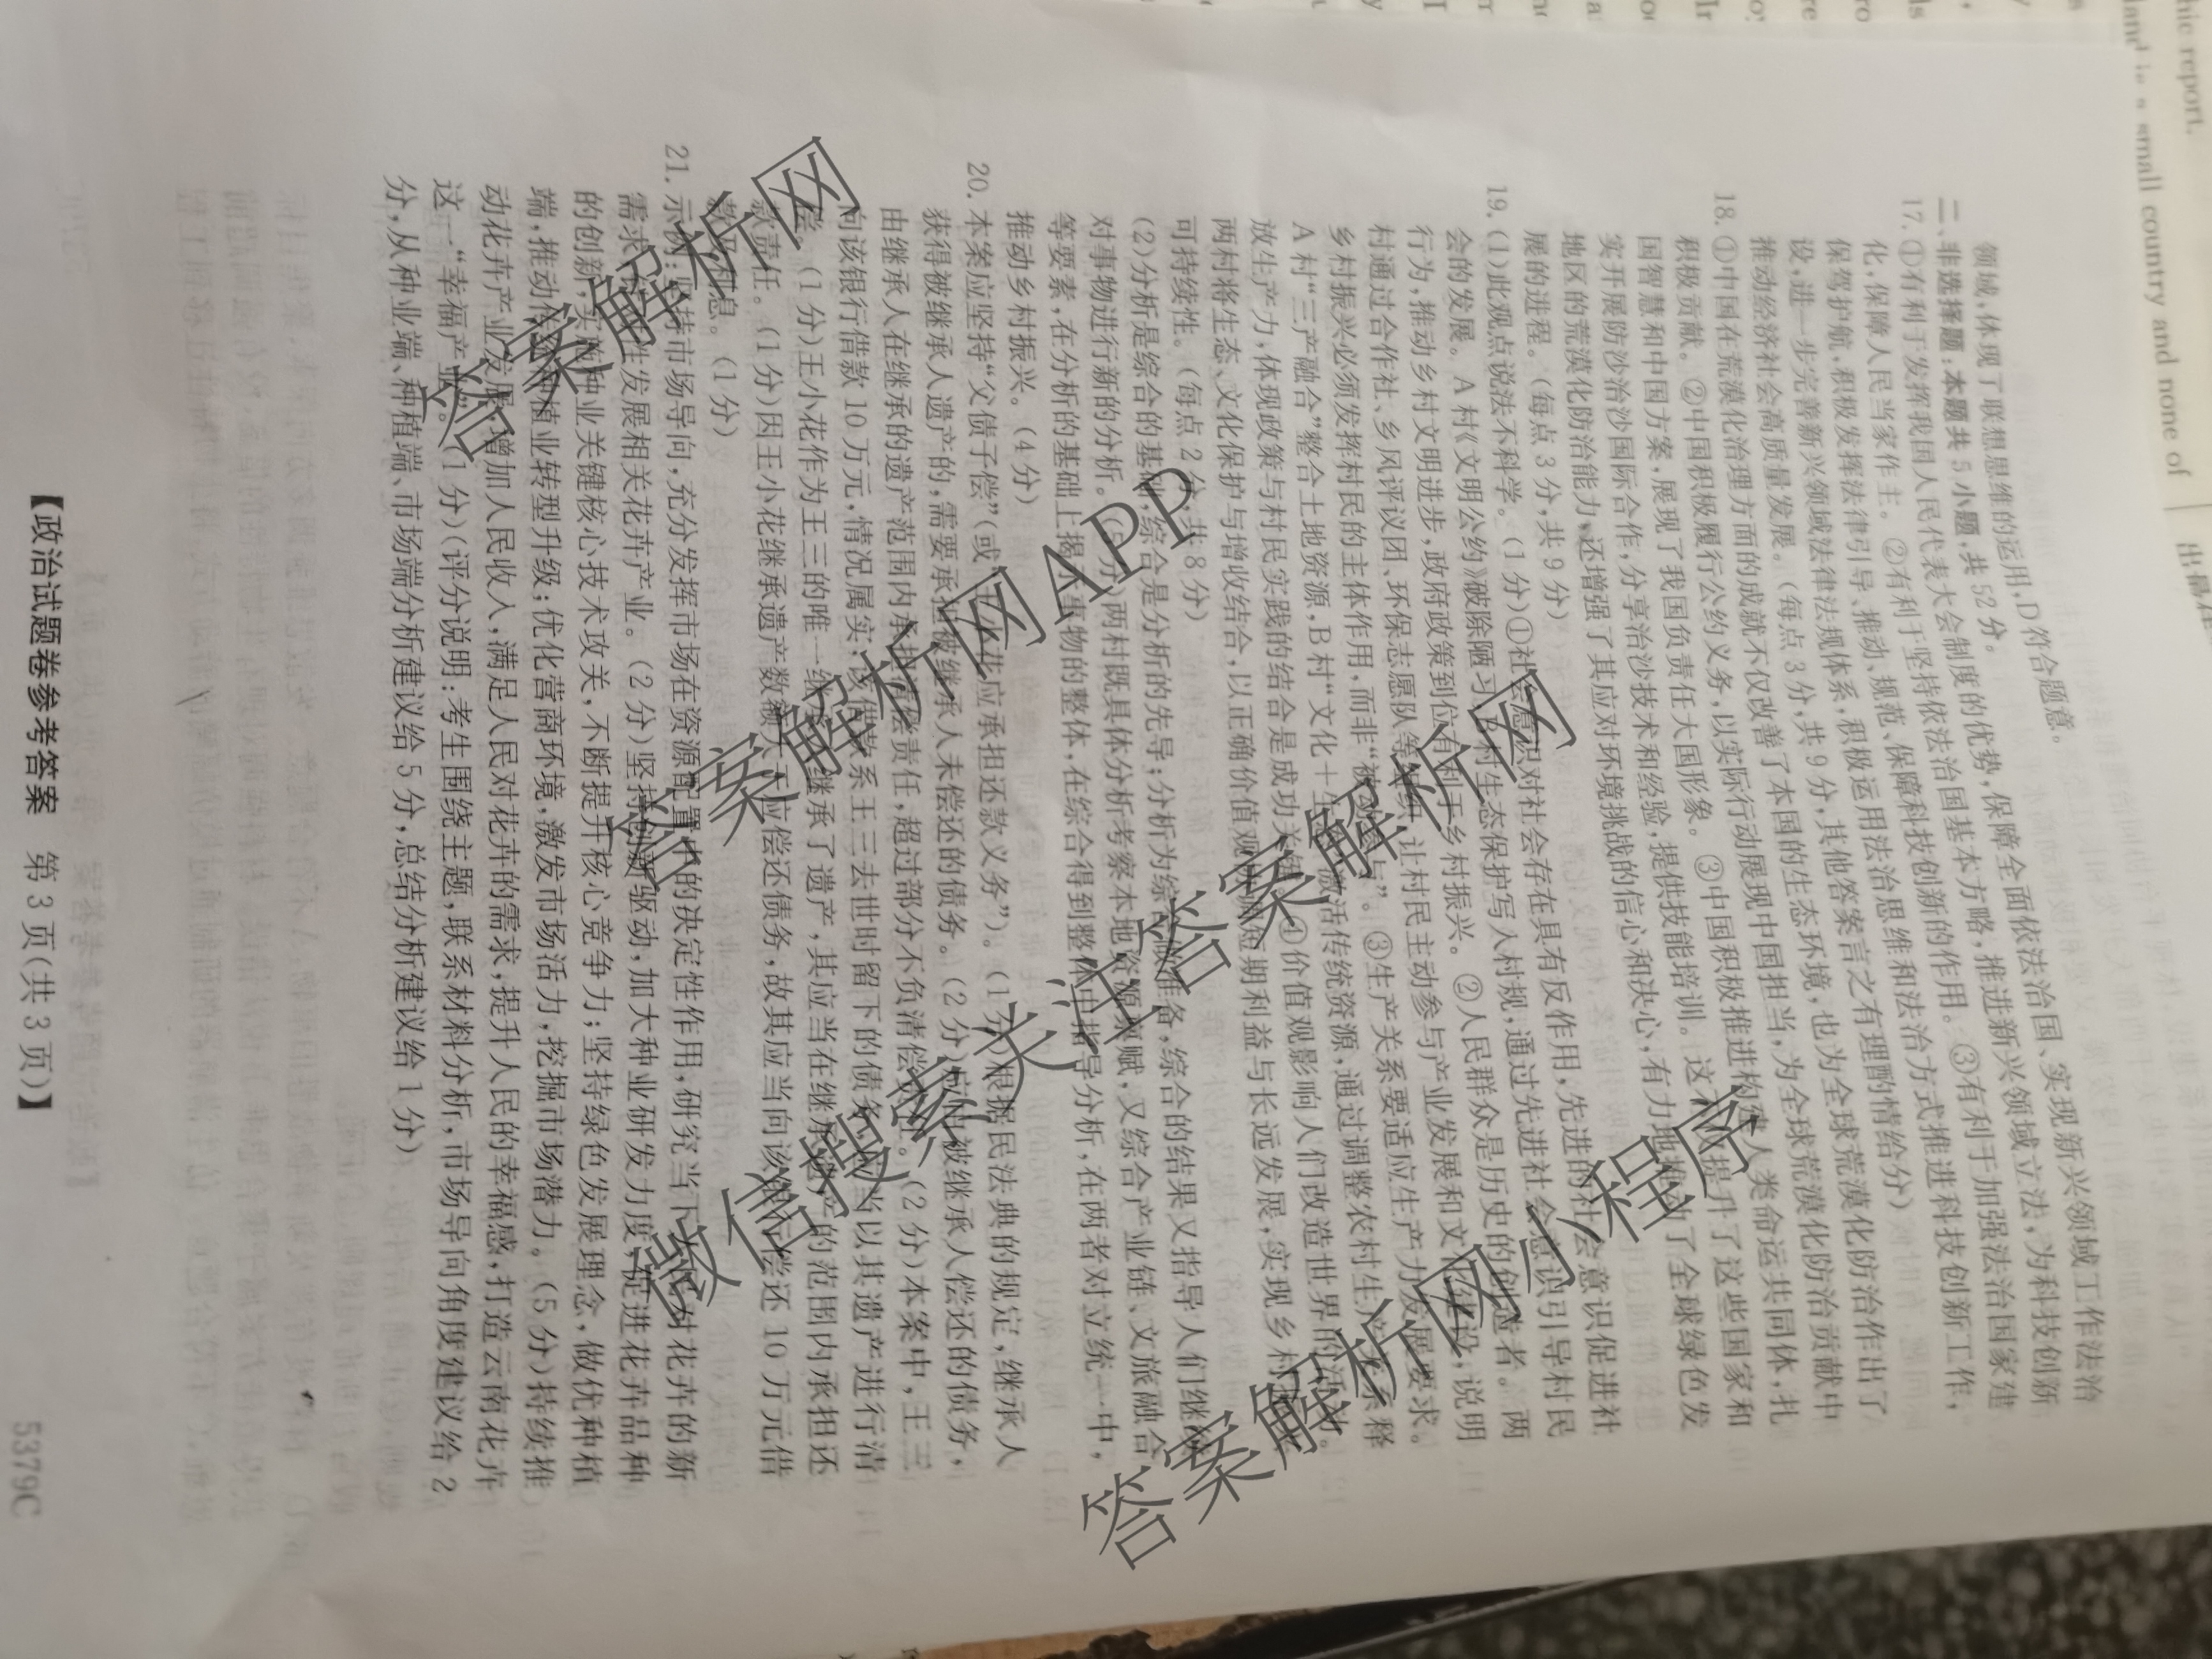 领域,体现了联想思维的运用,D符合题意。
二、非选择题:本题共5小题,共52分。
17.①有利于发挥我国人民代表大会制度的优势,保障全面依法治国、实现新兴领域工作法治
化,保障人民当家作主。②有利于坚持依法治国基本方略,推进新兴领域立法,为科技创新
保驾护航,积极发挥法律引导、推动、规范、保障科技创新的作用。③有利于加强法治国家建
设,进一步完善新兴领域法律法规体系,积极运用法治思维和法治方式推进科技创新工作,
推动经济社会高质量发展。(每点3分,共9分,其他答案言之有理酌情给分)
18.①中国在荒漠化治理方面的成就不仅改善了本国的生态环境,也为全球荒漠化防治作出了
积极贡献。②中国积极履行公约义务,以实际行动展现中国担当,为全球荒漠化防治贡献中
国智慧和中国方案,展现了我国负责任大国形象。③中国积极推进构建人类命运共同体,扎
实开展防沙治沙国际合作,分享治沙技术和经验,提供技能培训。这 提升了这些国家和
地区的荒漠化防治能力,还增强了其应对环境挑战的信心和决心,有力地推动了全球绿色发
展的进程。(每点3分,共9分)
19.(1)此观点说法不科学。(1分)①社会意识对社会存在具有反作用,先进的社会意识促进社
会的发展。A村《文明公约》破除陋习,B村生态保护写入村规,通过先进社会意识引导村民
行为,推动乡村文明进步,政府政策到位有利于乡村振兴。②人民群众是历史的创造者。两
村通过合作社、乡风评议团、环保志愿队等组织,让村民主动参与产业发展和文化建设,说明
乡村振兴必须发挥村民的主体作用,而非“被动参与”。③生产关系要适应生产力发展要求。
A村“三产融合”整合土地资源,B村“文化+生 激活传统资源,通过调整农村生产关系释
放生产力,体现政策与村民实践的结合是成功关键。④价值观影响人们改造世界的活动。
两村将生态、文化保护与增收结合,以正确价值观 短期利益与长远发展,实现乡村
可持续性。(每点2分,共8分)
(2)分析是综合的基础,综合是分析的先导;分析为综合做准备,综合的结果又指导人们继续
对事物进行新的分析。 两村既具体分析考察本地资源禀赋,又综合产业链、文旅融合
等要素,在分析的基础上揭示事物的整体,在综合得到整体中指导分析,在两者对立统一中,
推动乡村振兴。(4分)
20.本案应坚持“父债子偿”(或“王小花应承担还款义务”)。(1分)根据民法典的规定,继承人
获得被继承人遗产的,需要承担被继承人未偿还的债务。(2分) 被继承人偿还的债务,
由继承人在继承的遗产范围内承担清偿责任,超过部分不负清偿责任。(2分)本案中,王三
向该银行借款10万元,情况属实,该借款系王三去世时留下的债务,应当以其遗产进行清
偿。(1分)王小花作为王三的唯一继承人继承了遗产,其应当在继承遗产的范围内承担还
款责任。(1分)因王小花继承遗产数额大于应偿还债务,故其应当向该银行偿还10万元借
款及利息。(1分)
21.示例:坚持市场导向,充分发挥市场在资源配置中的决定性作用,研究当下 对花卉的新
需求, 性发展相关花卉产业。(2分)坚持创新驱动,加大种业研发力度,促进花卉品种
的创新,实施种业关键核心技术攻关,不断提升核心竞争力;坚持绿色发展理念,做优种植
端,推动 种植业转型升级;优化营商环境,激发市场活力,挖掘市场潜力。(5分)持续推
动花卉产业发展,增加人民收入,满足人民对花卉的需求,提升人民的幸福感,打造云南花卉
这一“幸福产业”。(1分)(评分说明:考生围绕主题,联系材料分析,市场导向角度建议给2
分,从种业端、种植端、市场端分析建议给5分,总结分析建议给1分)
【政治试题卷参考答案 第3页(共3页)】
5379C
答案解析网
答案解析网APP
微信搜索关注答案解析网
答案解析网小程序
hic report.
land is a small country and none of